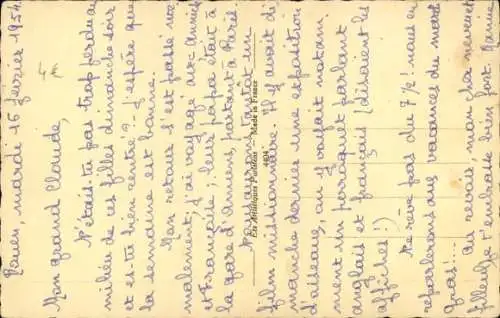 Rouen, mardi 16 février 1954
Mon grand Claude,
N'étais-tu pas trop perdu au
milieu de ces filles dimanche soir
et es-tu bien rentré ? - J'espère que
la semaine est bonne.
Mon retour s'est passé nor-
malement; j'ai voyagé avec Annie
et Françoise; leur papa était à
la gare d'Amiens, partant à Paris.
Nous aurons un
film missionnaire. Il y avait di-
manche dernier une exposition
d'oiseaux, on y voyait notam-
ment un perroquet parlant
anglais et français (disaient les
affiches !)
Ne rêve pas du 7 ½ ! nous en
reparlerons aux vacances du mardi
gras!...
Au revoir, mon cher neveu et
filleul, je t'embrasse bien fort.
Edc Artistiques Made in France